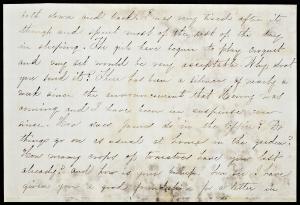 both down and back. I was very tired after it
though and spent most of the rest of the day
in sleeping. The girls have begun to play croquet
and my set would be very acceptable. Why don't
you send it? There has been a silence of nearly a
week since the announcement that Henry was
coming and I have been in suspense ever
since. How does James do in the Office? Do
things go on as usual at home in the garden?
How many crops of tomatoes have you lost
already? and how is your See I have
given you a good foundation for a letter in